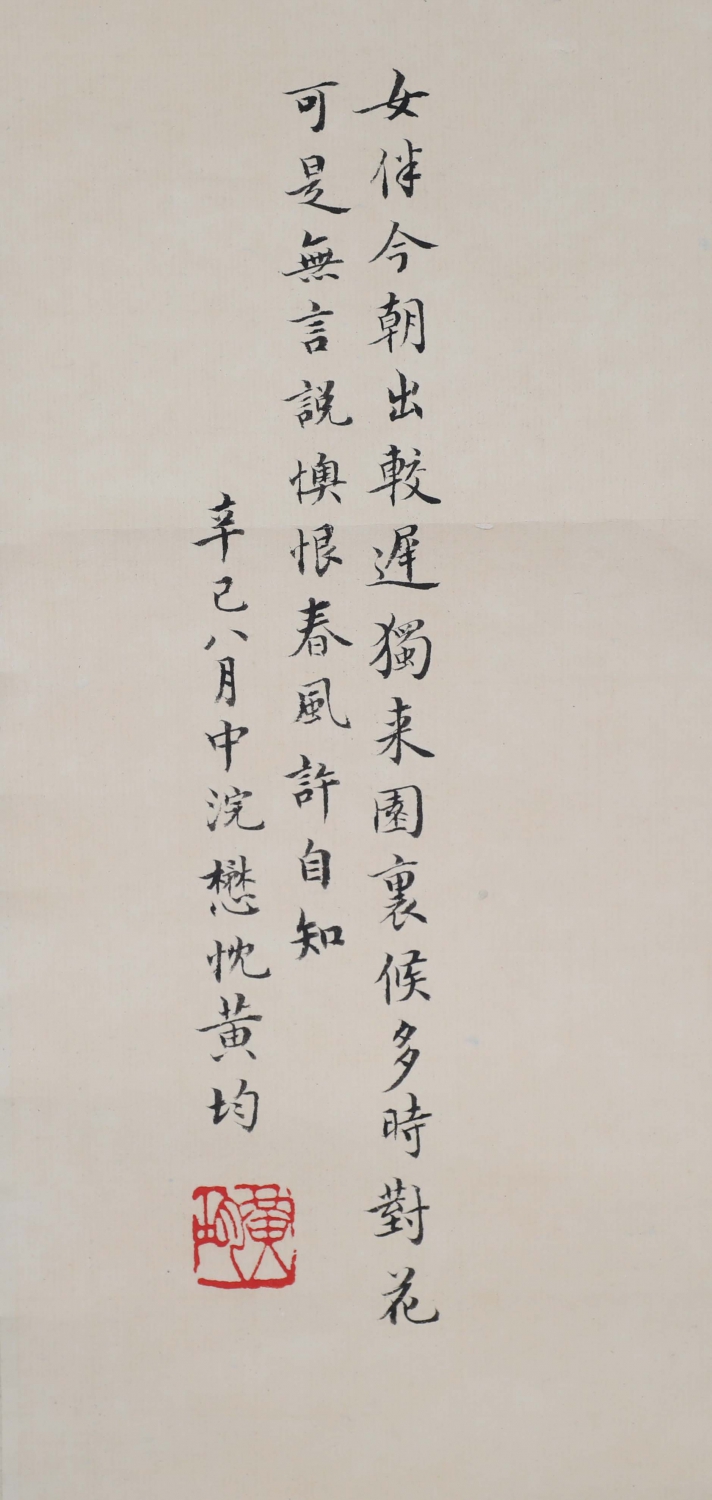 女伴今朝出較遲獨来園裏候多時對花
可是無言說懊恨春風許自知
辛巳八月中浣懋忱黄均
黄均